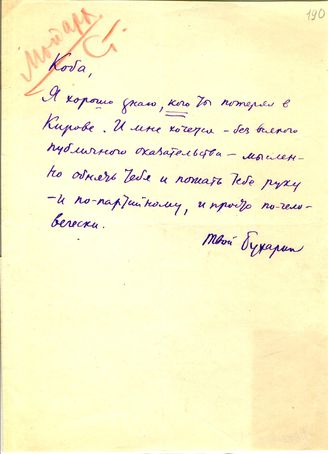 190
Мой арх
Коба,
Я хорошо знаю, кого ты потерял в
Кирове. И мне хочется - без всякого
публичного оказательства - мыслен-
но обнять тебя и пожать тебе руку
- и по-партийному, и просто по-чело-
вечески.
Твой Бухарин